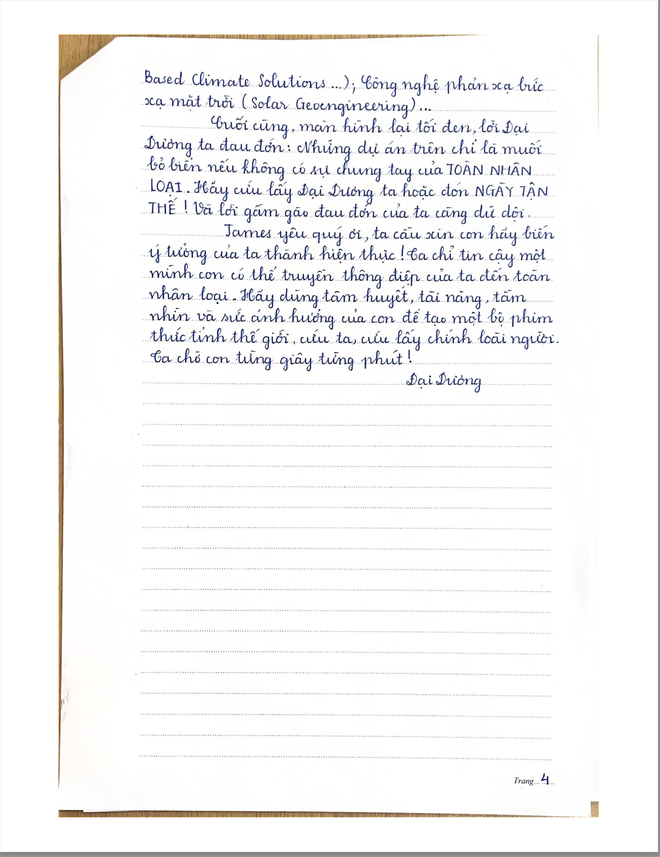 Based Climate Solutions ...); Công nghệ phản xạ bức
xạ mặt trời (Solar Geoengineering)...
Cuối cùng, màn hình lại tối đen, lời Đại
Dương ta đau đớn: Những dự án trên chỉ là muối
bỏ biển nếu không có sự chung tay của TOÀN NHÂN
LOẠI. Hãy cứu lấy Đại Dương ta hoặc đón NGÀY TẬN
THẾ! Và lời gầm gào đau đớn của ta càng dữ dội.
James yêu quý ơi, ta cầu xin con hãy biến
ý tưởng của ta thành hiện thực! Ta chỉ tin cậy một
mình con có thể truyền thông điệp của ta đến toàn
nhân loại. Hãy dùng tâm huyết, tài năng, tầm
nhìn và sức ảnh hưởng của con để tạo một bộ phim
thức tỉnh thế giới, cứu ta, cứu lấy chính loài người.
Ta chờ con từng giây từng phút!
Đại Dương
Trang 4